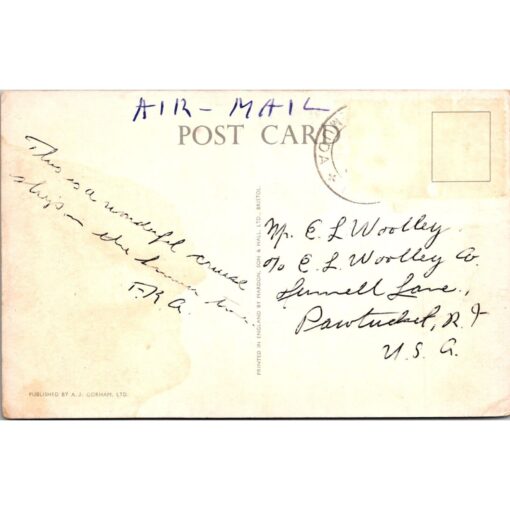 AIR-MAIL
POST CARD
MUDA
This is a wonderful cruise
ship – the
F.K.A.
PRINTED IN ENGLAND BY MARDON, SON & HALL, LTD., BRISTOL.
Mr. E. L. Woolley
c/o E. L. Woolley Co.
Lane.,
Pawtucket, R.I
U.S.A.
PUBLISHED BY A. J. GORHAM, LTD.